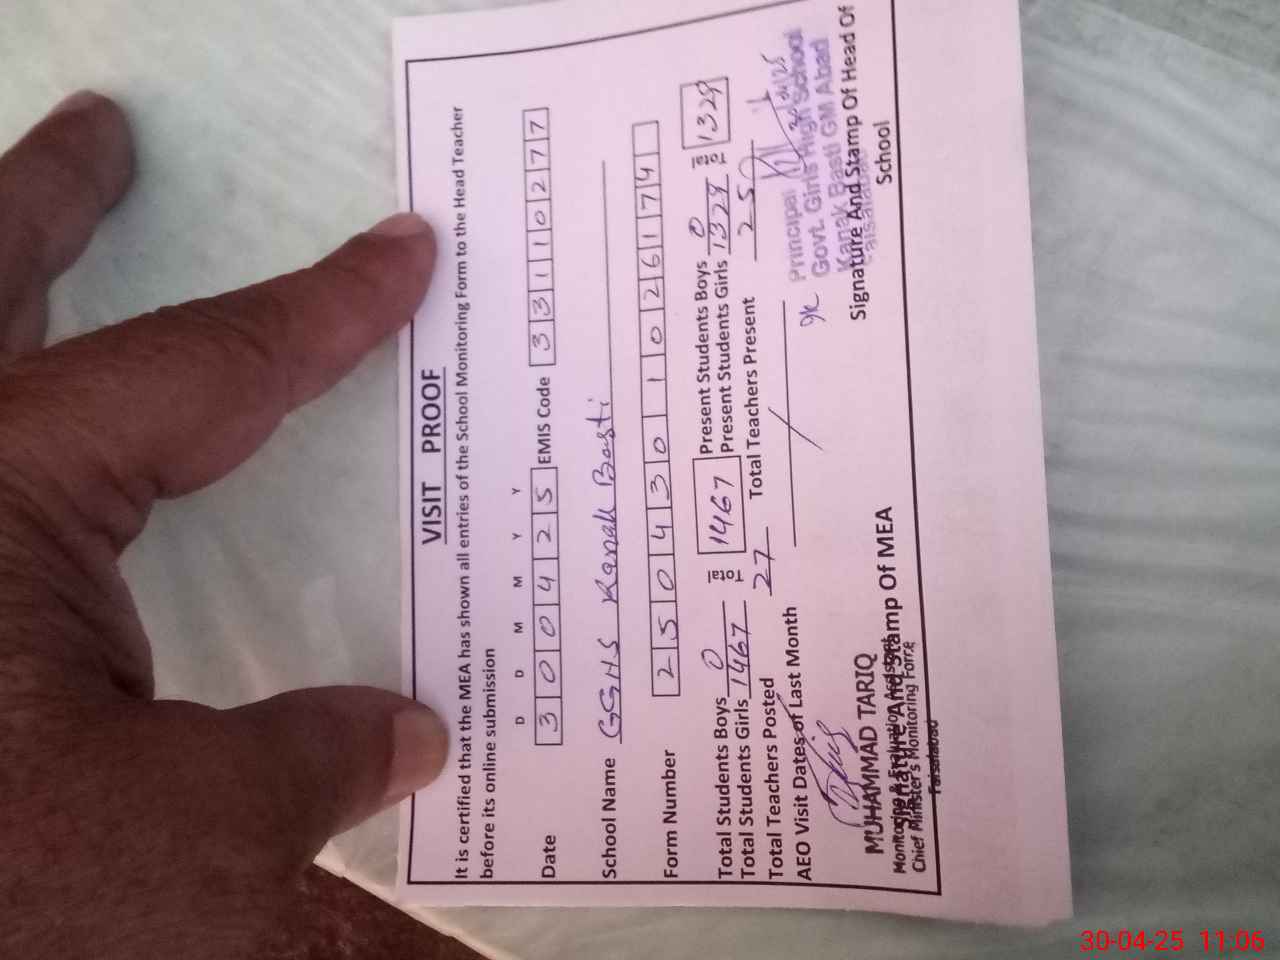 VISIT PROOF
It is certified that the MEA has shown all entries of the School Monitoring Form to the Head Teacher
before its online submission
D D M M Y Y
Date 3 0 0 4 2 5 EMIS Code 3 3 1 1 0 2 7 7
School Name GGHS Kanak Basti
Form Number 2 5 0 4 3 0 1 1 0 2 6 1 7 4
Total Students Boys 0 Total 1467 Present Students Boys 0
Total Students Girls 1467 Present Students Girls 1328 1329
Total Teachers Posted 27 Total Teachers Present 25
AEO Visit Dates of Last Month
Principal
Govt. Girls High School
Kanak Basti GM Abad
Faisalabad
Signature And Stamp Of Head Of
School
MUHAMMAD TARIQ
Monitoring & Evaluation Assistant
Signature And Stamp Of MEA
Chief Minister's Monitoring Force
Faisalabad
30-04-25 11:06